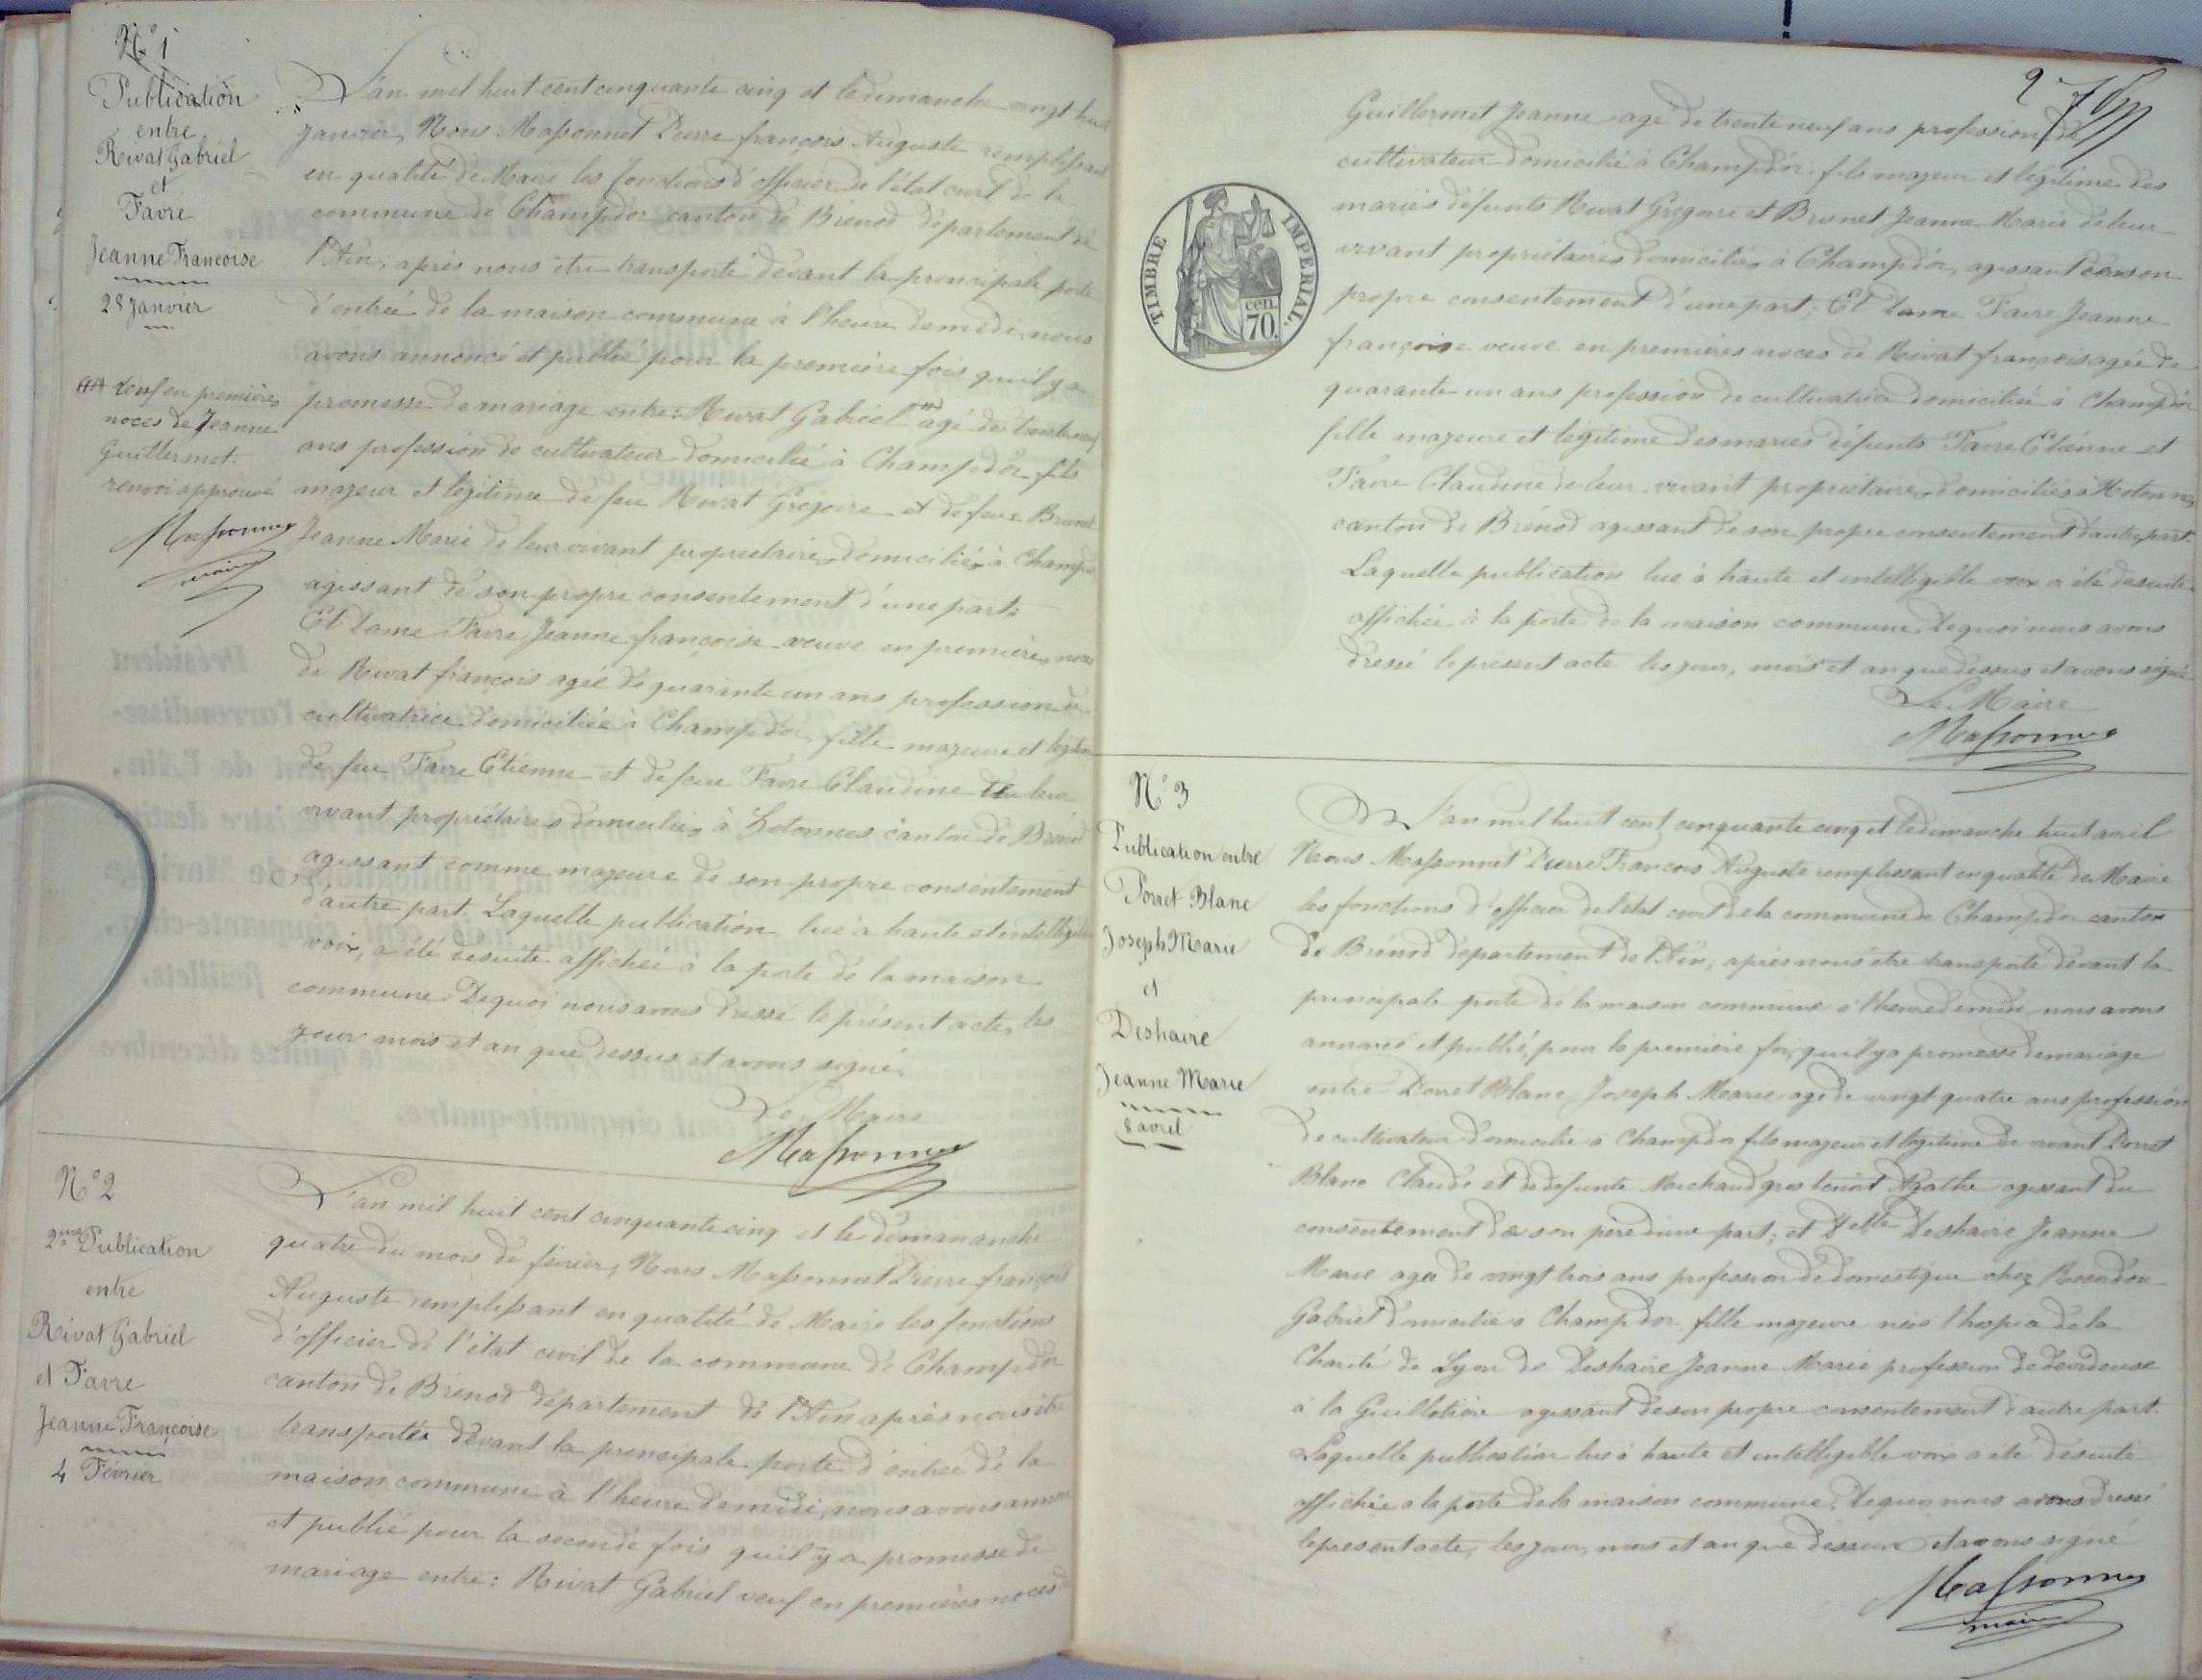 N° 1
Publication
entre
Rivat Gabriel
et
Favre
Jeanne Françoise
28 Janvier
L'an mil huit cent cinquante cinq et le dimanche vingt huit
Janvier, Nous Massonnet Pierre françois Auguste remplissant
en qualité de Maire les fonctions d'officier de l'état civil de la
commune de Champdor canton de Brénod département de
l'Ain; après nous être transporté devant la principale porte
d'entrée de la maison commune à l'heure de midi, nous
avons annoncé et publié pour la première fois qu'il y a
promesse de mariage entre: Rivat Gabriel agé de trente neuf
ans profession de cultivateur domicilié à Champdor fils
majeur et légitime de feu Rivat Grégoire et de feue Brunet
Jeanne Marie de leur vivant propriétaires domiciliés à Champdor
agissant de son propre consentement d'une part;
Et Dame Favre Jeanne françoise veuve en premières noces
de Rivat françois agée de quarante un ans profession de
cultivatrice domiciliée à Champdor, fille majeure et légitime
de feu Favre Etienne et de feue Favre Claudine de leur
vivant propriétaires domiciliés à Hotonnes canton de Brénod
agissant comme majeure de son propre consentement
d'autre part. Laquelle publication lue à haute et intelligible
voix, a été de suite affichée à la porte de la maison
commune. De quoi nous avons dressé le présent acte, les
jour mois et an que dessus et avons signé.
Le Maire
Massonnet
veuf en premières
noces de Jeanne
Guillermet.
renvoi approuvé
Massonnet
maire
N° 2
2me Publication
entre
Rivat Gabriel
et Favre
Jeanne Françoise
4 Février
L'an mil huit cent cinquante cinq et le dimananche
quatre du mois de février, Nous Massonnet Pierre françois
Auguste remplissant en qualité de Maire les fonctions
d'officier de l'état civil de la commune de Champdor
canton de Brénod département de l'Ain après nous être
transportés devant la principale porte d'entrée de la
maison commune à l'heure de midi, nous avons annoncé
et publié pour la seconde fois qu'il y a promesse de
mariage entre: Rivat Gabriel veuf en premières noces de
2
Guillermet Jeanne agé de trente neuf ans profession de
cultivateur domicilié à Champdor, fils majeur et légitime des
mariés défunts Rivat Gregoire et Brunet Jeanne Marie de leur
vivant propriétaires domiciliés à Champdor, agissant de son
propre consentement d'une part; Et Dame Favre Jeanne
françoise veuve en premières noces de Rivat françois agée de
quarante un ans profession de cultivatrice domiciliée à Champdor
fille majeure et légitime des mariés défunts Favre Etienne et
Favre Claudine de leur vivant propriétaires domiciliés à Hotonnes
canton de Brénod agissant de son propre consentement d'autre part.
Laquelle publication lue à haute et intelligible voix a été de suite
affichée à la porte de la maison commune. De quoi nous avons
dressé le présent acte les jour, mois et an que dessus et avons signé
Le Maire
Massonnet
TIMBRE IMPERIAL.
cen.
70.
N° 3
Publication entre
Poret Blanc
Joseph Marie
et
Deshaire
Jeanne Marie
8 avril
L'an mil huit cent cinquante cinq et le dimanche huit avril
Nous Massonnet Pierre François Auguste remplissant en qualité de Maire
les fonctions d'officier de l'état civil de la commune de Champdor canton
de Brénod département de l'Ain, après nous être transporté devant la
principale porte de la maison commune à l'heure de midi, nous avons
annoncé et publié, pour la première fois, qu'il y a promesse de mariage
entre Poret Blanc Joseph Marie agé de vingt quatre ans profession
de cultivateur domicilié à Champdor fils majeur et légitime de vivant Poret
Blanc Claude et de défunte Michaud gros benoit Agathe agissant du
consentement de son père d'une part; et Delle Deshaire Jeanne
Marie agée de vingt trois ans profession de domestique chez
Gabriel domiciliée à Champdor fille majeure de l'hospice de la
Charité de Lyon de Deshaire Jeanne Marie profession de devideuse
à la Guillotière agissant de son propre consentement d'autre part.
Laquelle publication lue à haute et intelligible voix a été de suite
affichée à la porte de la maison commune. De quoi nous avons dressé
le présent acte, les jour, mois et an que dessus et avons signé
Massonnet
maire